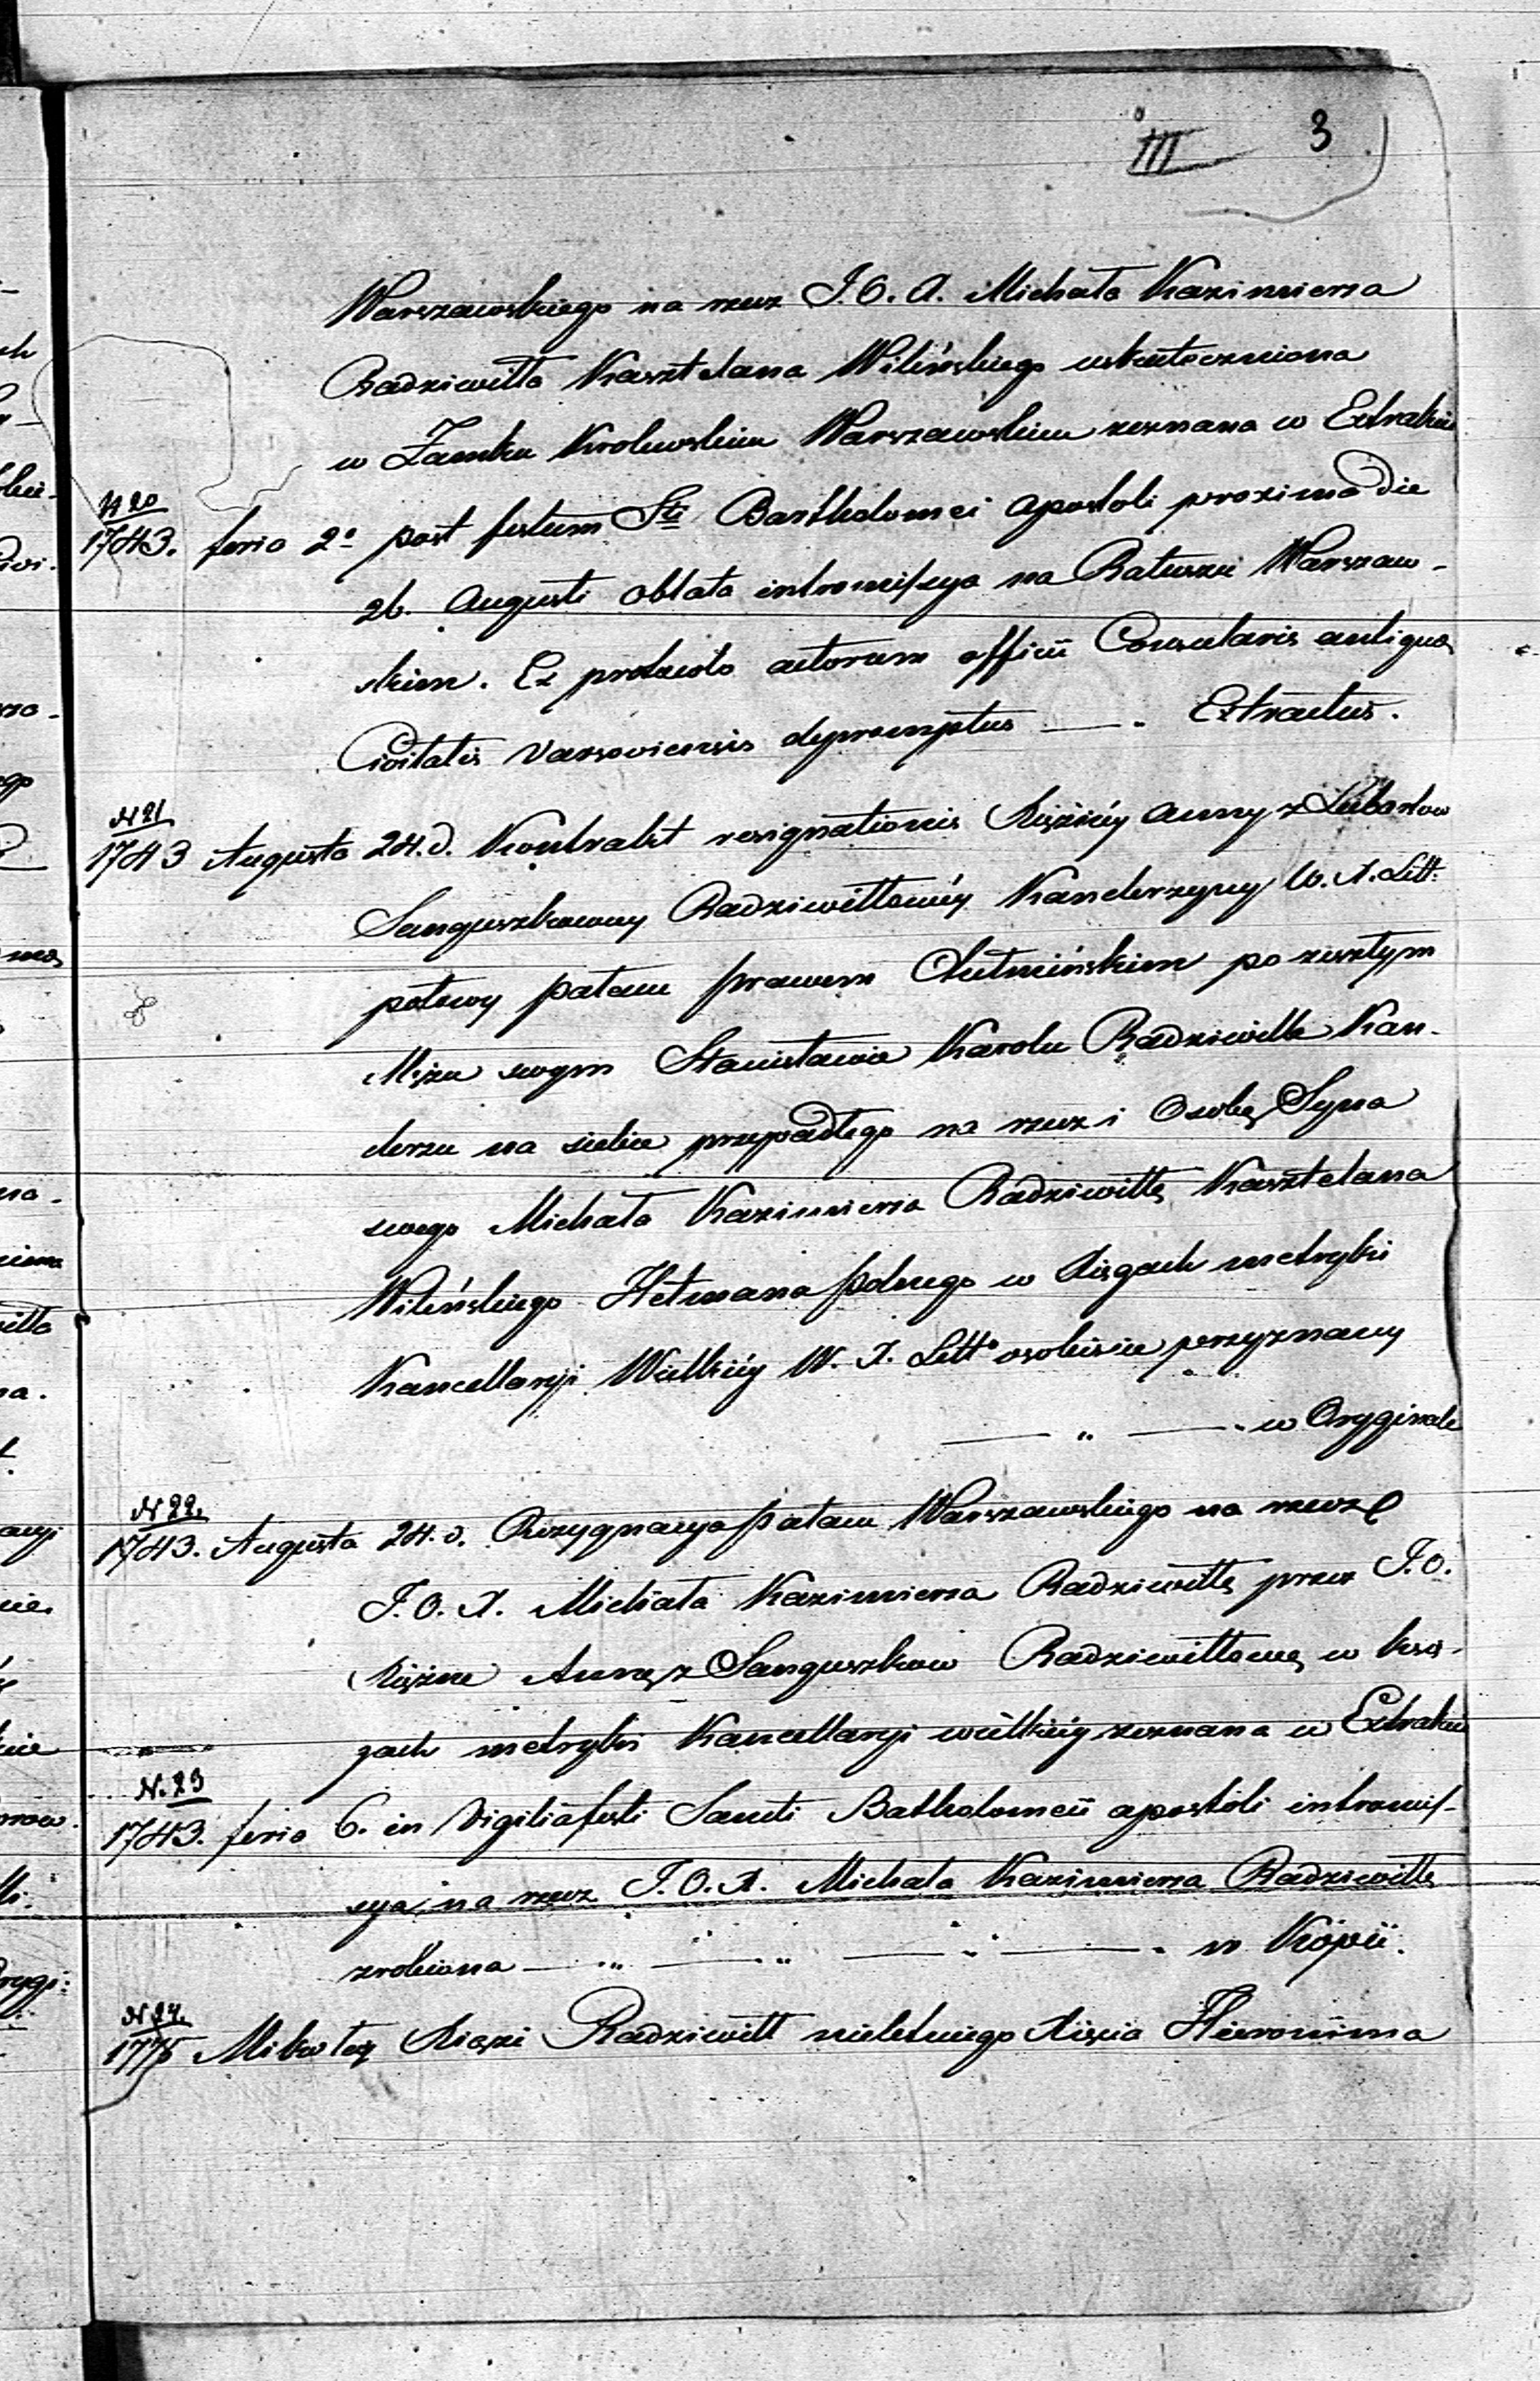 III 3
Warszawskiego na rzecz J.O.X. Michała Kazimierza
Radziwiłła Kasztelana Wileńskiego uskuteczniona
w Zamku Krolewskim Warszawskim zeznana w Extrakcie
N 20
1743. feria 2a post festum Sti Bartholomei Apostoli proxima die
26. Augusti oblata intromissya na Ratuszu Warszaw-
skim. Ex protocolo actorum officii Consularis antiqua
Civitatis Varsoviensis depromptus —. Extractus.
N 21
1743 Augusta 24. d. Kontrakt resignationis Xiężnéy Anny z Lubartow
Sanguszkowny Radziwiłłowéy Kanclerzyny W. X. Litt:
połowy pałacu prawem Chełmińskim po zeszłym
Mężu swym Stanisławie Karolu Radziwille Kan-
clerzu na siebie przypadłego na rzecz i Osobę Syna
swego Michała Kazimierza Radziwiłła Kasztelana
Wileńskiego Hetmana polnego w Xięgach metryki
Kancellaryji Wielkiéy W. X. Litto osobiscie przyznany
— „ —. w Oryginale
N 22.
1743. Augusta 24. d. Rezygnacya pałacu Warszawskiego na rzecz
J.O.X. Michała Kazimierza Radziwiłła przez J.O.
Xiężne Annę z Sanguszkow Radziwiłłowę w ksią-
gach metryki Kancellaryji wielkiéy zeznana w Extrakcie
N. 23
1743. feria 6. in Vigilia festi Sancti Batholomeii apostoli intromis-
sya na rzecz J.O.X. Michała Kazimierza Radziwiłła
zrobiona — „ — „ — „ —. w Kopii.
N 24.
1775 Mikołay Xiąże Radziwiłł nieletniego Xięcia Hieronima